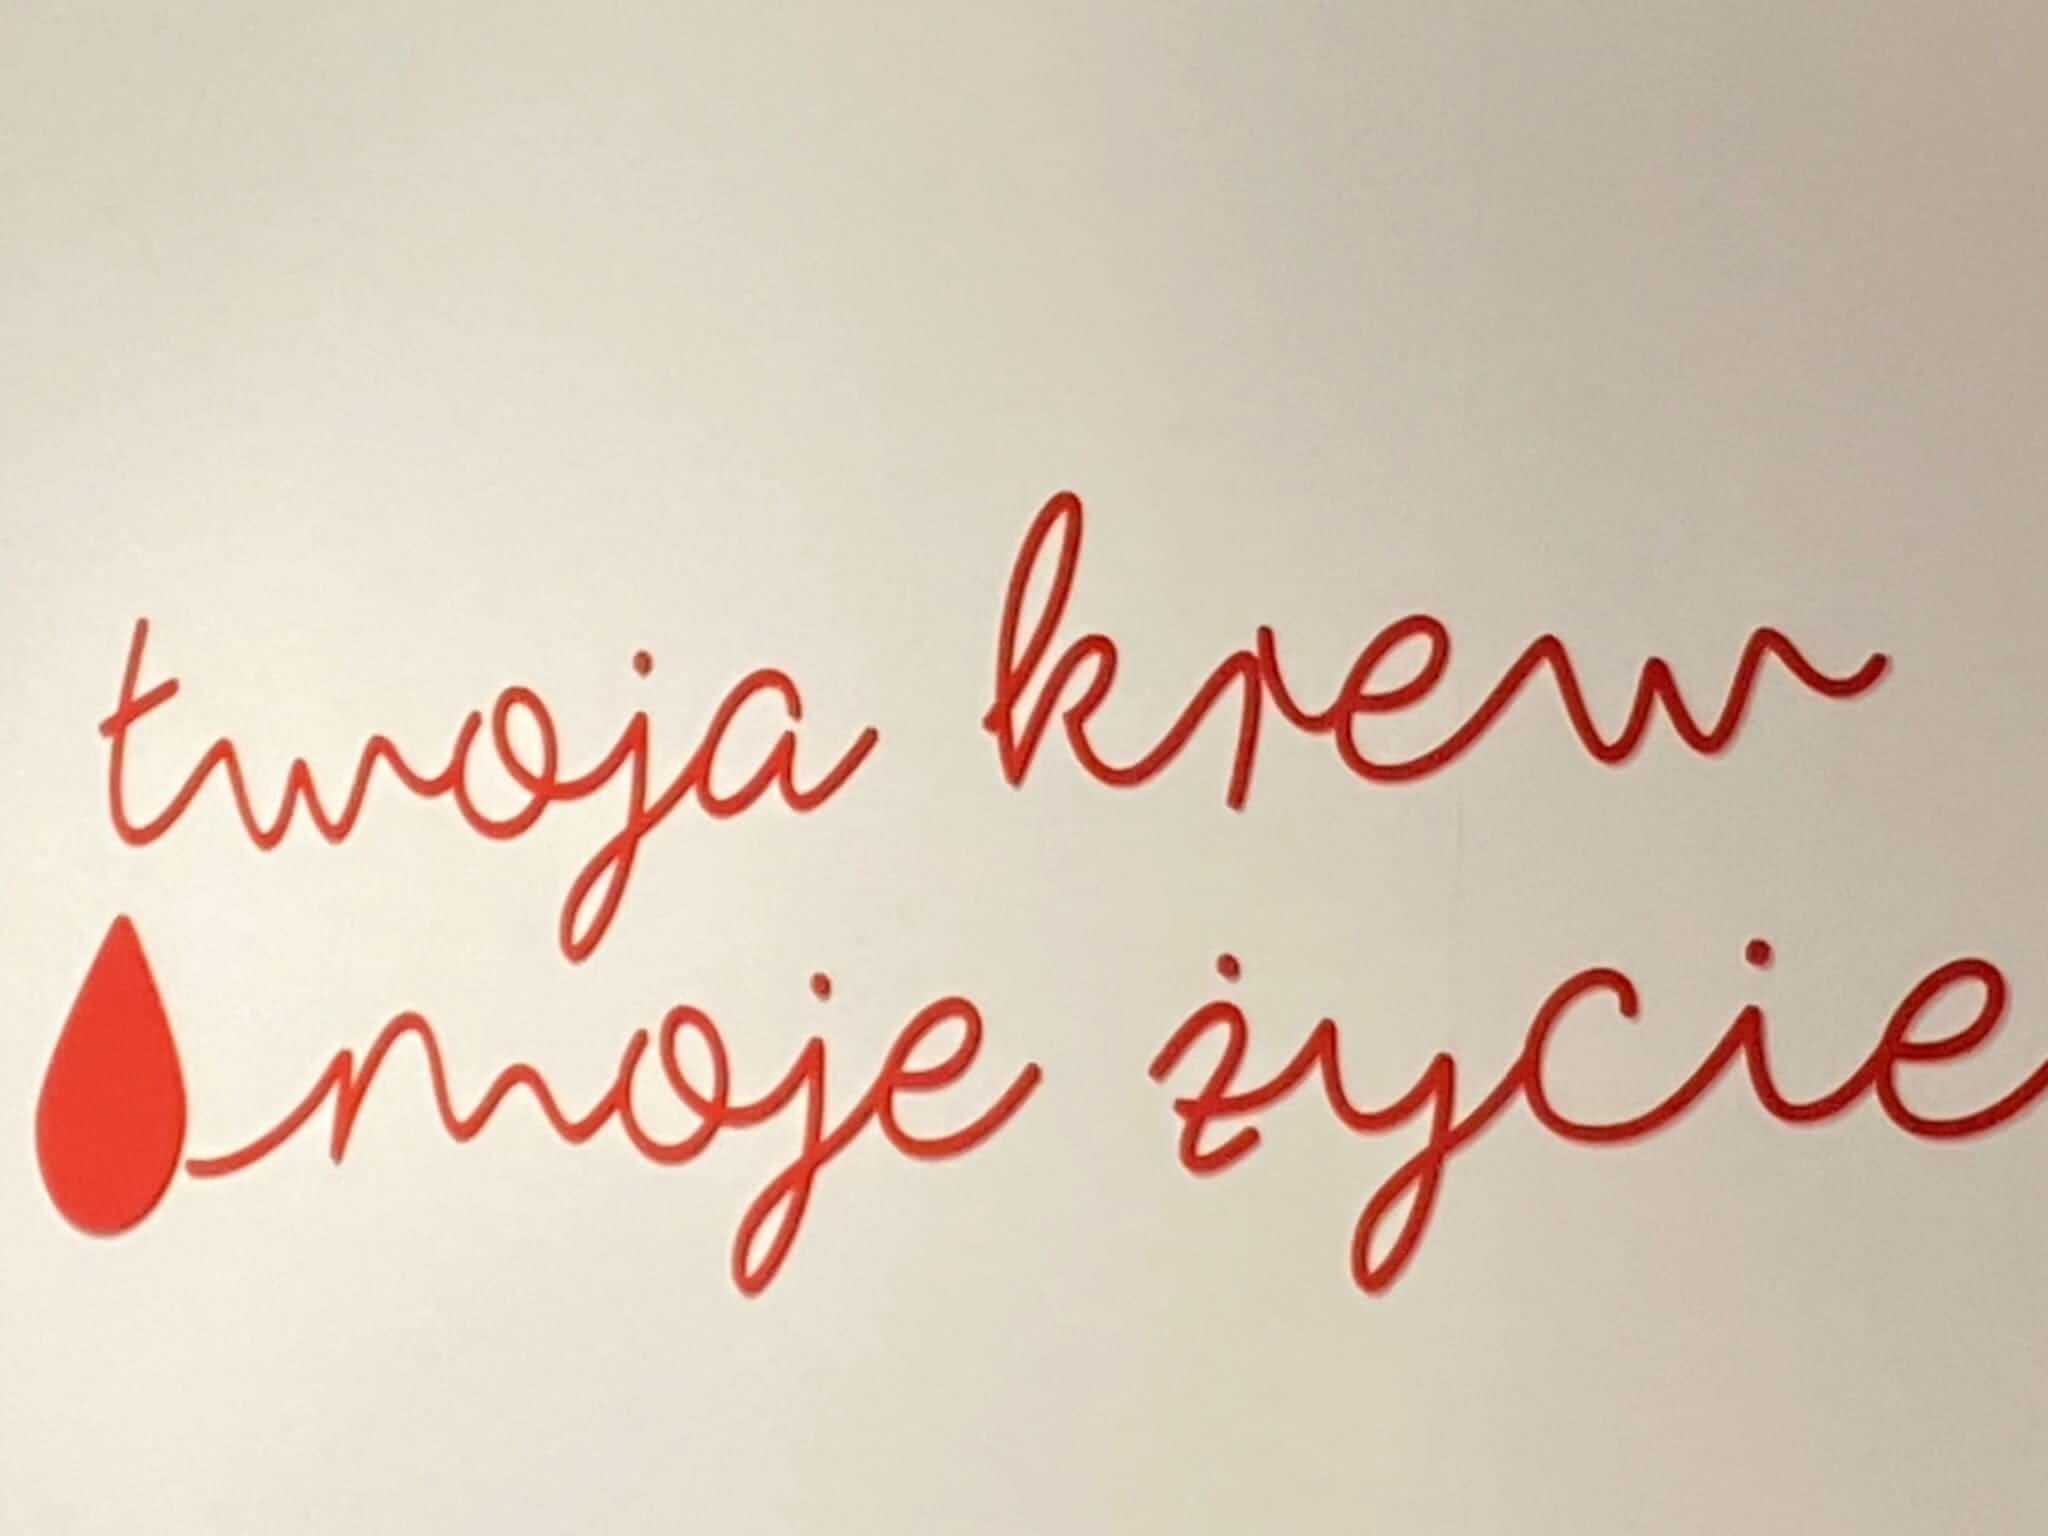 twoja krew
moje życie